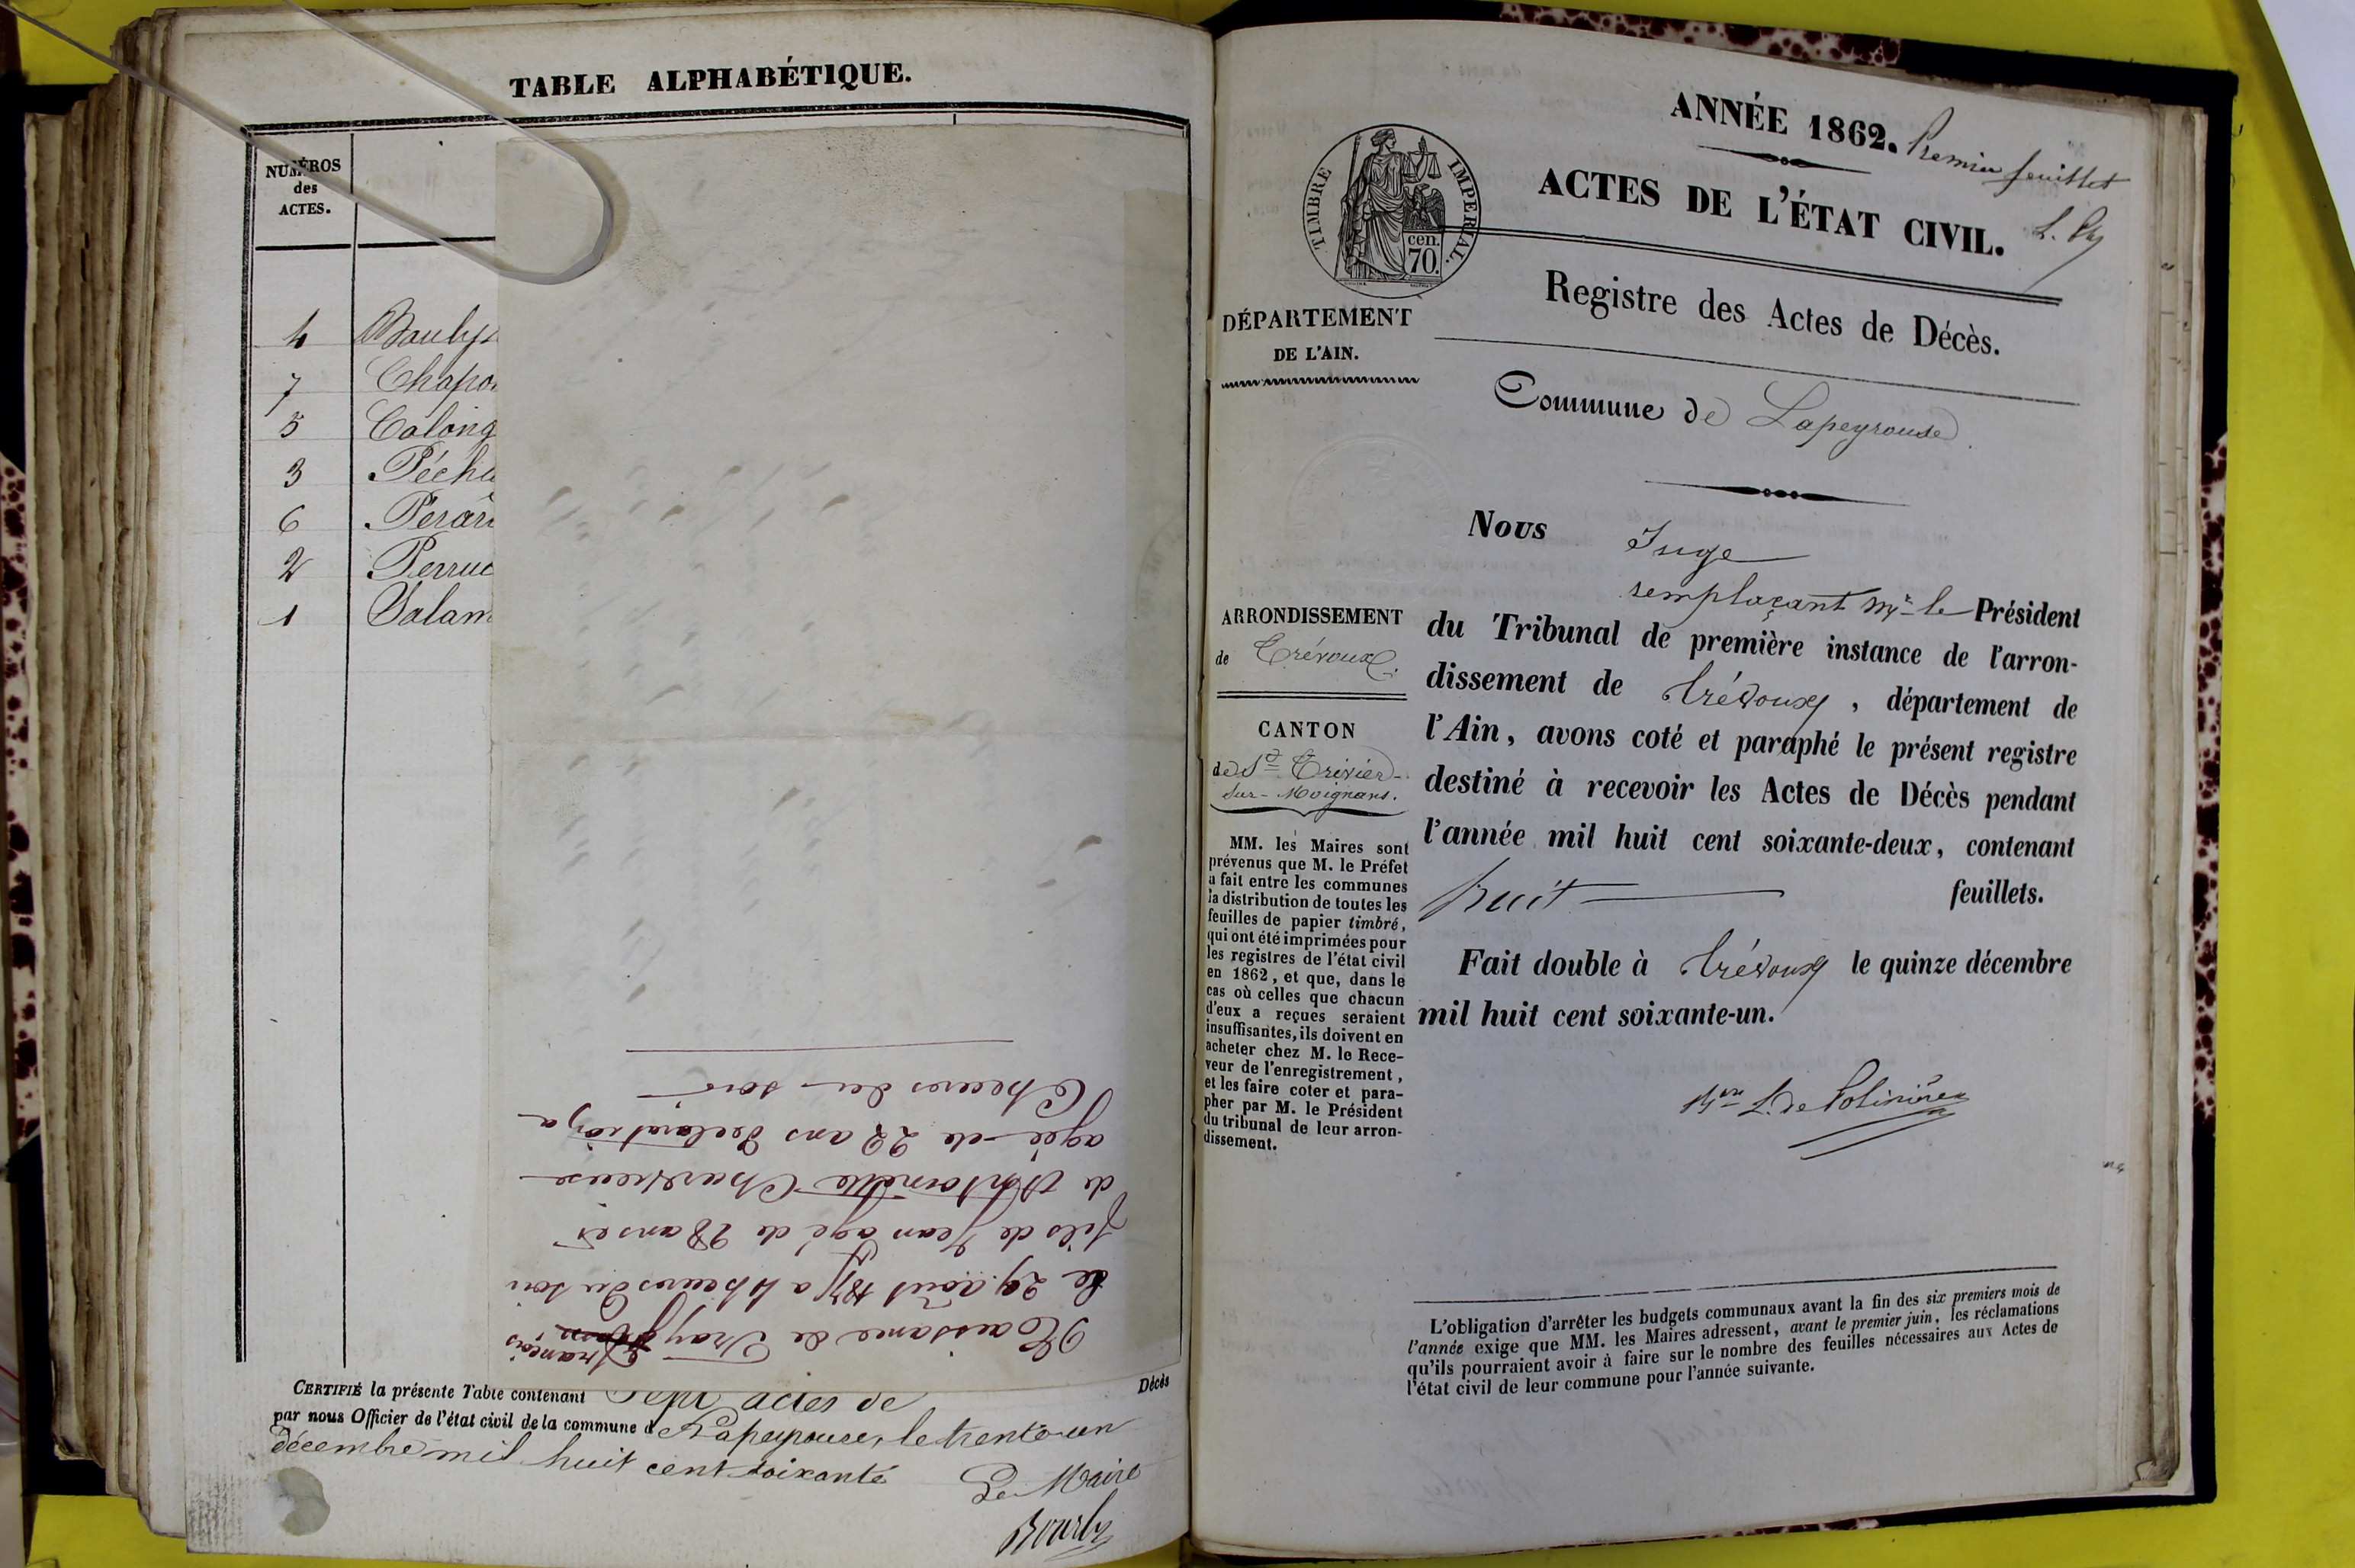 TABLE ALPHABÉTIQUE.
NUMÉROS
des
ACTES.
4
7 Chapo
5 Calong
3 Péchu
6 Perar
2 Perruc
1 Salam
Naissance de Tray François
le 29 août 1871 a 4 heures du soir
fils de Jean agé de 28 ans et
de Antoinette Chartreuse
agée de 22 ans declaration a
6 heures du soir
CERTIFIÉ la présente Table contenant Sept actes de Décès
par nous Officier de l'état civil de la commune d Lapeyrouse, le trente-un
décembre mil huit cent soixante
Le Maire
Bourly
ANNÉE 1862. Premier feuillet
ACTES DE L'ÉTAT CIVIL.
TIMBRE IMPERIAL.
cen.
70.
Registre des Actes de Décès.
DÉPARTEMENT
DE L'AIN.
Commune de Lapeyrouse.
Nous Juge
remplaçant Mr le Président
ARRONDISSEMENT
de Trévoux.
du Tribunal de première instance de l'arron-
dissement de Trévoux, département de
l'Ain, avons coté et paraphé le présent registre
destiné à recevoir les Actes de Décès pendant
l'année mil huit cent soixante-deux, contenant
huit feuillets.
CANTON
de St Trivier-
sur-Moignans.
MM. les Maires sont
prévenus que M. le Préfet
a fait entre les communes
la distribution de toutes les
feuilles de papier timbré,
qui ont été imprimées pour
les registres de l'état civil
en 1862, et que, dans le
cas où celles que chacun
d'eux a reçues seraient
insuffisantes, ils doivent en
acheter chez M. le Rece-
veur de l'enregistrement,
et les faire coter et para-
pher par M. le Président
du tribunal de leur arron-
dissement.
Fait double à Trévoux le quinze décembre
mil huit cent soixante-un.
Bon L. de Polinière
L'obligation d'arrêter les budgets communaux avant la fin des six premiers mois de
l'année exige que MM. les Maires adressent, avant le premier juin, les réclamations
qu'ils pourraient avoir à faire sur le nombre des feuilles nécessaires aux Actes de
l'état civil de leur commune pour l'année suivante.